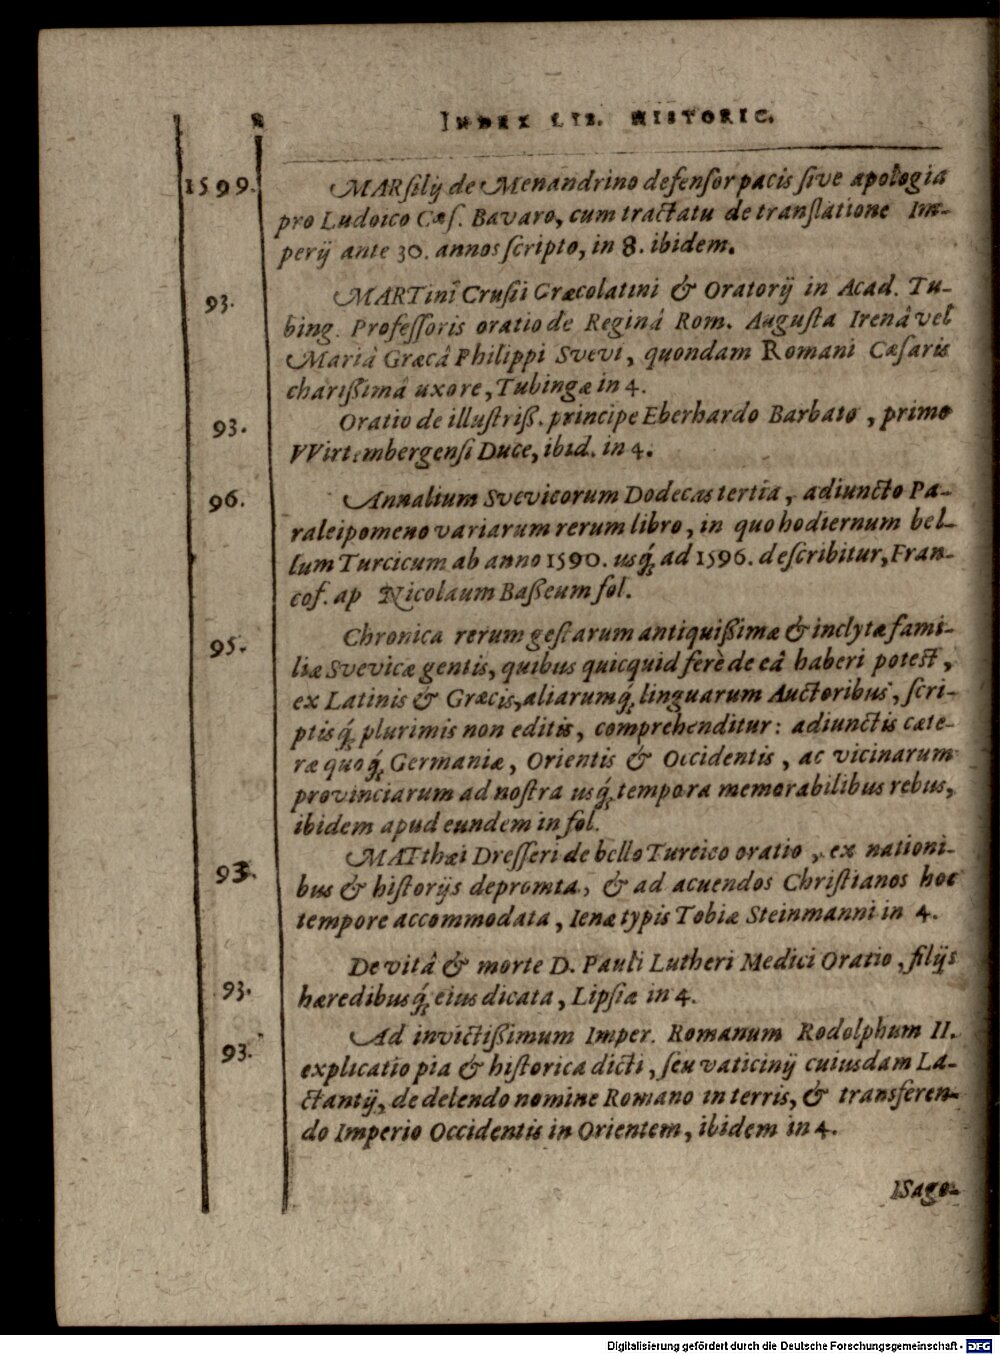 INDEX LIB. HISTORIC.
1599. MARsilij de Menandrino defensor pacis sive apologia
pro Ludoico Cæs. Bavaro, cum tractatu de translatione Im-
perij ante 30. annos scripto, in 8. ibidem.
93. MARTini Crusii Græcolatini & Oratorij in Acad. Tu-
bing. Professoris oratio de Reginâ Rom. Augusta Irenâ vel
Mariâ Græcâ Philippi Svevi, quondam Romani Cæsaris
charißimâ uxore, Tubingæ in 4.
93. Oratio de illustriß. principe Eberhardo Barbato, primo
VVirtembergensi Duce, ibid. in 4.
96. Annalium Svevicorum Dodecas tertia, adiuncto Pa-
raleipomeno variarum rerum libro, in quo hodiernum bel-
lum Turcicum ab anno 1590. usq́; ad 1596. describitur, Fran-
cof. ap Nicolaum Baßeum fol.
95. Chronica rerum gestarum antiquißimæ & inclytæ fami-
liæ Svevicæ gentis, quibus quicquid ferè de eâ haberi potest,
ex Latinis & Græcis, aliarumq́; linguarum Auctoribus, scri-
ptisq́; plurimis non editis, comprehenditur: adiunctis cæte-
ræ quoq́; Germaniæ, Orientis & Occidentis, ac vicinarum
provinciarum ad nostra usq́; tempora memorabilibus rebus,
ibidem apud eundem in fol.
93. MATthæi Dresseri de bello Turcico oratio, ex nationi-
bus & historijs depromta, & ad acuendos Christianos hoc
tempore accommodata, Ienæ typis Tobiæ Steinmanni in 4.
De vitâ & morte D. Pauli Lutheri Medici Oratio, filijs
93. hæredibusq́; eius dicata, Lipsiæ in 4.
93. Ad invictißimum Imper. Romanum Rodolphum II.
explicatio pia & historica dicti, seu vaticinij cuiusdam La-
ctantij, de delendo nomine Romano in terris, & transferen-
do Imperio Occidentis in Orientem, ibidem in 4.
ISago-
Digitalisierung gefördert durch die Deutsche Forschungsgemeinschaft - DFG